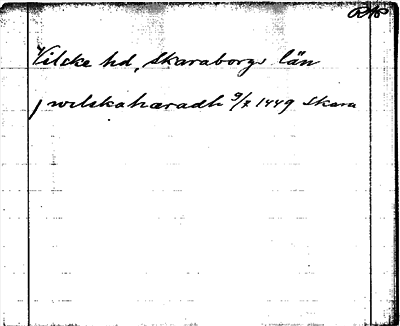 Vilske hd, Skaraborgs län
j wilskahæradh 9/7 1449 Skara